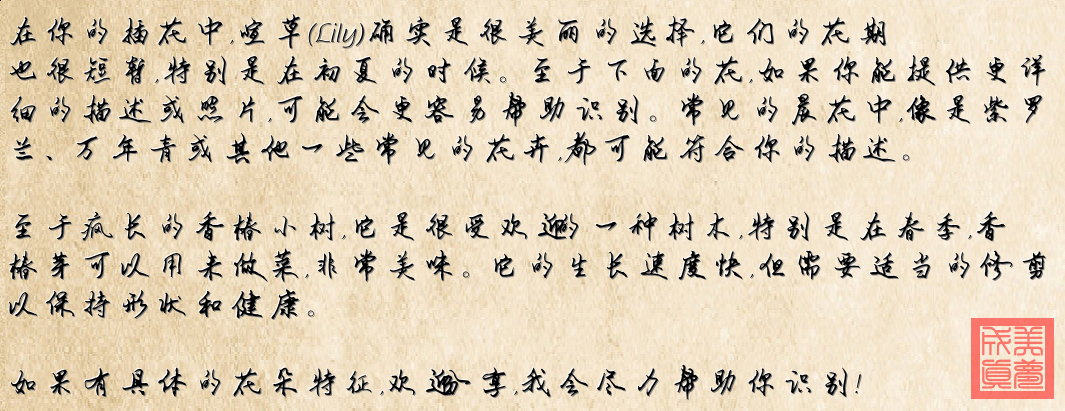 在你的插花中,喧草(Lily)确实是很美丽的选择,它们的花期
也很短暂,特别是在初夏的时候。至于下面的花,如果你能提供更详
细的描述或照片,可能会更容易帮助识别。常见的晨花中,像是紫罗
兰、万年青或其他一些常见的花卉,都可能符合你的描述。
至于疯长的香椿小树,它是很受欢迎的一种树木,特别是在春季,香
椿芽可以用来做菜,非常美味。它的生长速度快,但需要适当的修剪
以保持形状和健康。
如果有具体的花朵特征,欢迎分享,我会尽力帮助你识别!